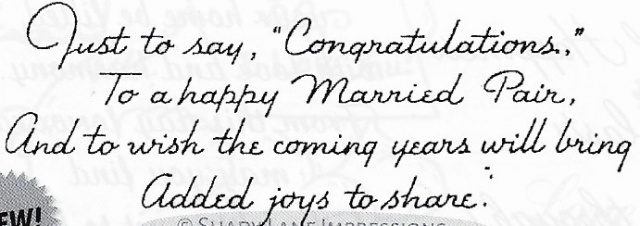 Just to say, "Congratulations.,"
To a happy Married Pair,
And to wish the coming years will bring
Added joys to share.
EW!
© SHADY LANE IMPRESSIONS